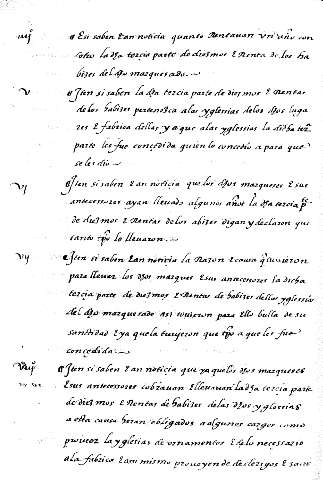 iiij ¶ En saben Ean noticia quanto Rentauan un año con
otro la dha tercia parte de diezmos E Renta de los ha
bizes del dho marquesado
V ¶ Iten si saben la dha tercia parte de diezmos E Rentas
de los habizes pertenesca a las yglesias de los dhos luga
res E fabrica dellas y a que a las yglesias la dicha terª
parte les fue concedida quien lo concedio a para que
se les dio
Vj ¶ Iten si saben Ean noticia que los dhos marqueses E sus
antecessores ayan lleuado algunos años la dha tercia pte
de diezmos E Rentas de los abizes digan y declaren que
tanto tpo lo lleuaron
Vij ¶ Iten si saben Ean noticia la Razon E causa q tuuieron
para lleuar los dhos marqueses E sus antecesores la dicha
tercia parte de diezmos E Rentas de habizes de las yglesias
del dho marquesado si tuuieron para Ello bulla de su
santidad E ya que la tuuiesen que tpo a que les fue
concedida
Viij ¶ Iten si saben Ean noticia que ya que los dhos marqueses
E sus antecesores cobrauan E lleuauan la dha tercia parte
de diezmos E Rentas de habizes de las dhas yglesias
a esta causa heran obligados a algunos cargos como
proueer la yglesias de ornamentos E de lo necessario
a la fabrica E ansi mismo proueyendo de clerigos E